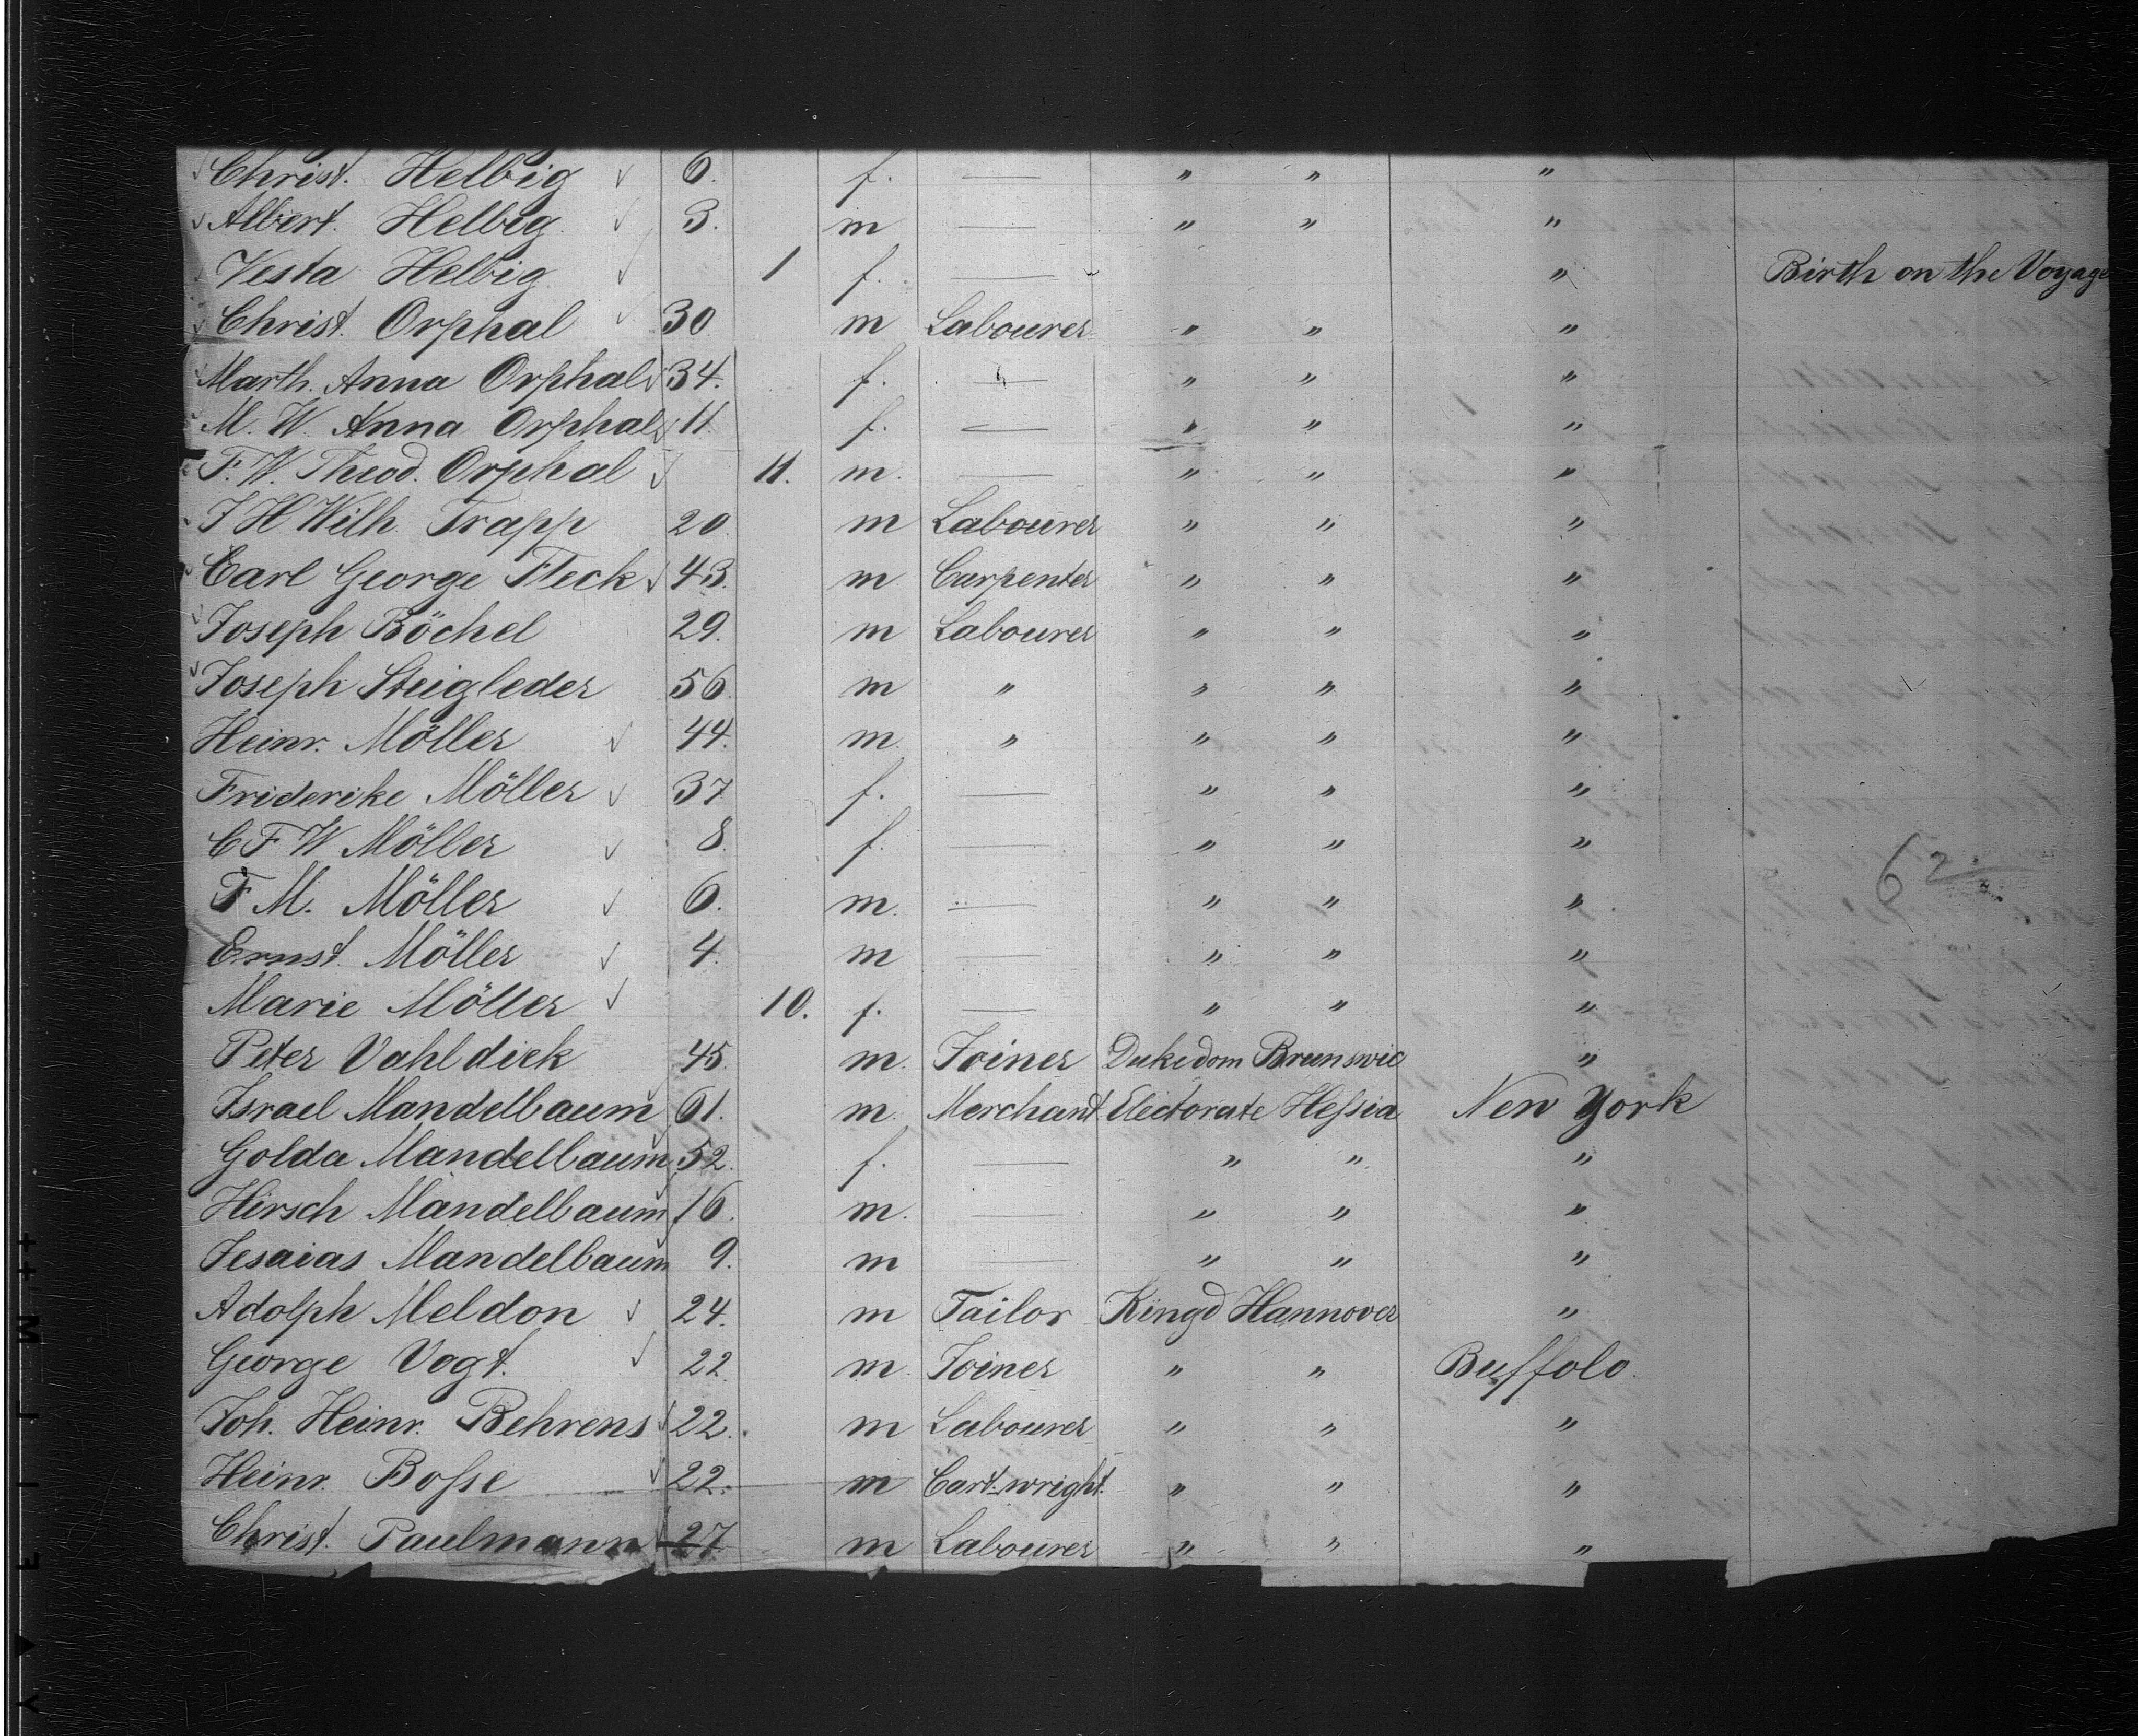 Christ. Helbig 6. f. — " " "
Albert. Helbig 3. m — " " "
Vesta Helbig 1 f. — " Birth on the Voyage
Christ. Orphal 30 m Labourer " " "
Marth. Anna Orphal 34. f. — " " "
M. W. Anna Orphal 11 f. — " " "
F. W. Theod. Orphal 11. m. — " " "
J H Wilh. Trapp 20 m Labourer " " "
Carl George Fleck 43. m Carpenter " " "
Joseph Böchel 29. m Labourer " " "
Joseph Steigleder 56 m " " " "
Heinr. Möller 44. m. " " " "
Friderike Möller 37 f. — " " "
C F W Möller 8. f. — " " "
F M. Möller 6. m. — " " "
Ernst. Möller 4. m — " " "
Marie Möller 10. f. — " " "
Peter Vahldiek 45. m. Joiner Dukedom Brunswic "
Israel Mandelbaum 61. m. Merchant Electorate Heſsia New York
Golda Mandelbaum 52. f. — " " "
Hirsch Mandelbaum 16. m. — " " "
Jesaias Mandelbaum 9. m — " " "
Adolph Meldon 24. m Tailor Kingd Hannover "
George Vogt. 22. m. Joiner " " Buffolo.
Joh. Heinr. Behrens 22. m Labourer " " "
Heinr. Boſse 22. m Cart-wright. " " "
Christ. Paulmann 27 m Labourer " " "
62